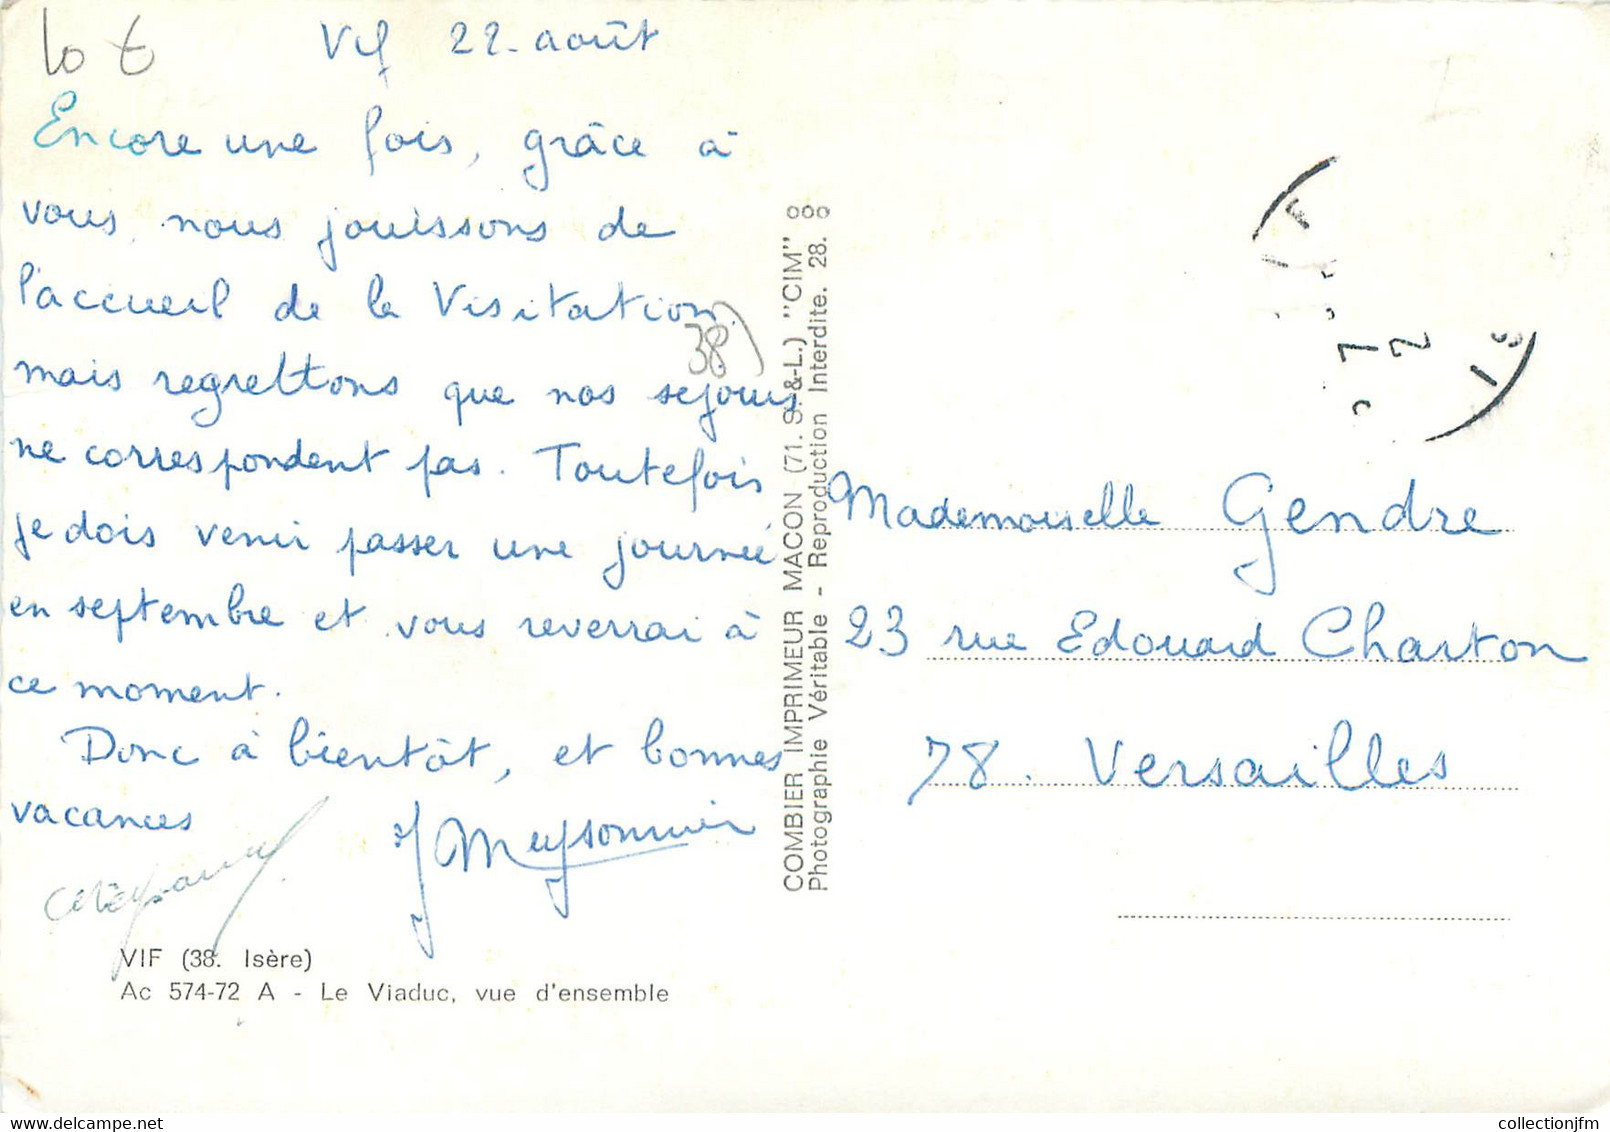 10 €
Vif 22. août
Encore une fois, grâce à
vous, nous jouissons de
l'accueil de la Visitation,
mais regrettons que nos séjours
ne correspondent pas. Toutefois
je dois venir passer une journée
en septembre et vous reverrai à
ce moment.
Donc à bientôt, et bonnes
vacances
J Meysonnier
38)
VIF (38. Isère)
Ac 574-72 A - Le Viaduc, vue d'ensemble
COMBIER IMPRIMEUR MACON (71. S.-&-L.) "CIM"
Photographie Véritable - Reproduction Interdite. 28.
Mademoiselle Gendre
23 rue Edouard Charton
78. Versailles
collectionjfm